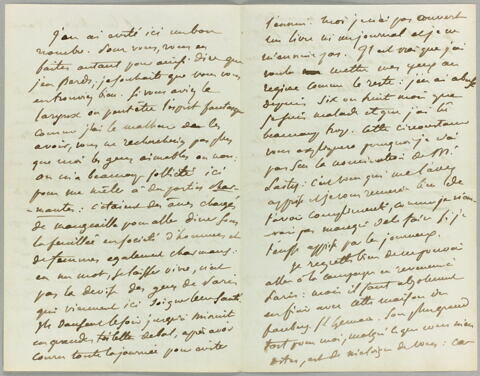 J'en ai évité ici un bon
nombre. Pour vous, vous en
faites autant pour ainsi dire que
j'en perds, je souhaite que vous vous
en trouviez bien. Si vous aviez le
larynx ou peut-être l'esprit
comme j'ai le malheur de les
avoir, vous ne rechercheriez pas plus
que moi les gens aimables ou non.
On m'a beaucoup sollicité ici
pour me mêler à des parties char-
mantes : c'étaient des ânes chargés
de mangeaille pour aller dîner sous
la feuillée en société d'hommes et
de femmes également charmants :
en un mot, se laisser vivre, n'est
pas la devise des gens de Paris
qui viennent ici soigner leur santé.
Ils dansent le soir jusqu'à minuit
en grandes toilettes de bal, après avoir
couru toute la journée pour éviter
l'ennui : moi je n'ai pas ouvert
un livre ni un journal et je ne
m'ennuie pas. Il est vrai que j'ai
voulu mettre mes yeux au
régime comme le reste : j'en ai abusé
depuis six ou huit mois que
je suis malade et que j'ai lu
beaucoup trop. Cette circonstance
vous explique pourquoi je n'ai
pas su la nomination de Mr
: c'est vous qui me l'avez
appris et je vous remercie bien de
l'avoir complimenté, comme je n'au-
rais pas manqué de le faire si je
l'eusse appris par les journaux.
Je regrette bien de ne pouvoir
aller à la campagne en revenant à
Paris : mais il faut absolument
en finir avec cette maison du
faubourg St Germain. Son plus grand
tort pour moi, malgré ce que vous m'en
dites, est de m'éloigner de vous : car